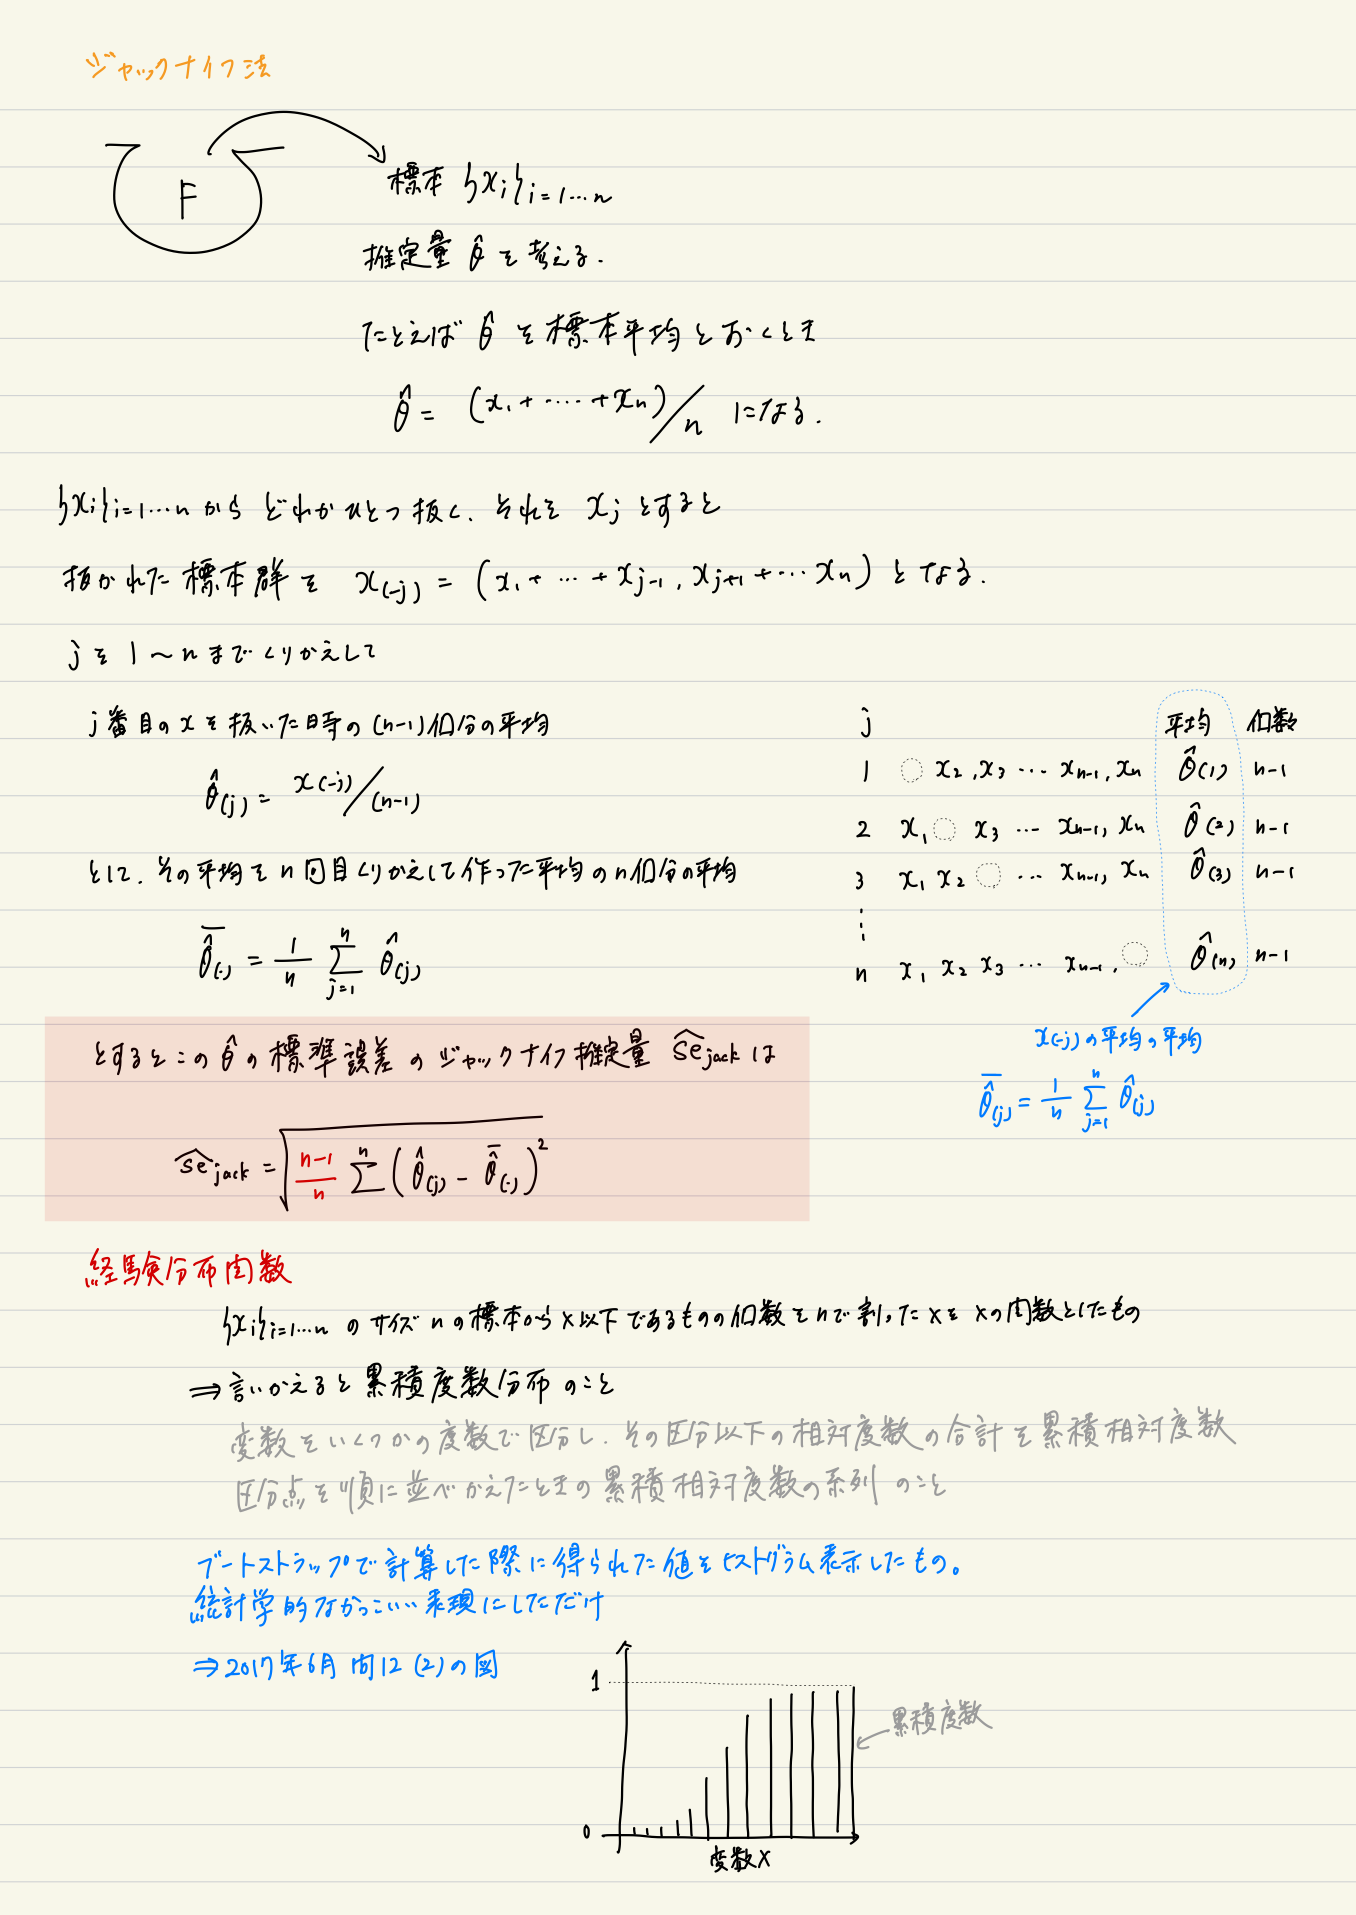 ジャックナイフ法
F
標本 {xi}i=1…n
推定量 θ̂ を考える.
たとえば θ̂ を標本平均とおくとき
θ̂ = (x1+……+xn)/n になる.
{xi}i=1…n から どれかひとつ抜く. それを xj とすると
抜かれた標本群を x(-j) = (x1+…+xj-1, xj+1+…xn) となる.
jを 1〜nまでくりかえして
j番目のxを抜いた時の(n-1)個分の平均
θ̂(j) = x(-j)/(n-1)
として. その平均をn回目くりかえして作った平均のn個分の平均
θ̂̅(·) = 1/n Σ_{j=1}^{n} θ̂(j)
j 平均 個数
1 ◌ x2, x3 … xn-1, xn θ̂(1) n-1
2 x1 ◌ x3 … xn-1, xn θ̂(2) n-1
3 x1 x2 ◌ … xn-1, xn θ̂(3) n-1
⋮
n x1 x2 x3 … xn-1, ◌ θ̂(n) n-1
x(-j)の平均の平均
θ̂̅(j) = 1/n Σ_{j=1}^{n} θ̂(j)
とするとこのθ̂の標準誤差のジャックナイフ推定量 ŝe jack は
ŝe jack = √( n-1/n Σ^{n} (θ̂(j) - θ̂̅(·))² )
経験分布関数
{xi}i=1…n のサイズnの標本からx以下であるものの個数をnで割ったxをxの関数としたもの
⇒言いかえると累積度数分布のこと
変数をいくつかの度数で区分し. その区分以下の相対度数の合計を累積相対度数
区分点を順に並べかえたときの累積相対度数の系列 のこと
ブートストラップで計算した際に得られた値をヒストグラム表示したもの。
統計学的なかっこいい表現にしただけ
⇒2017年6月 問12 (2)の図
1
累積度数
0
変数X